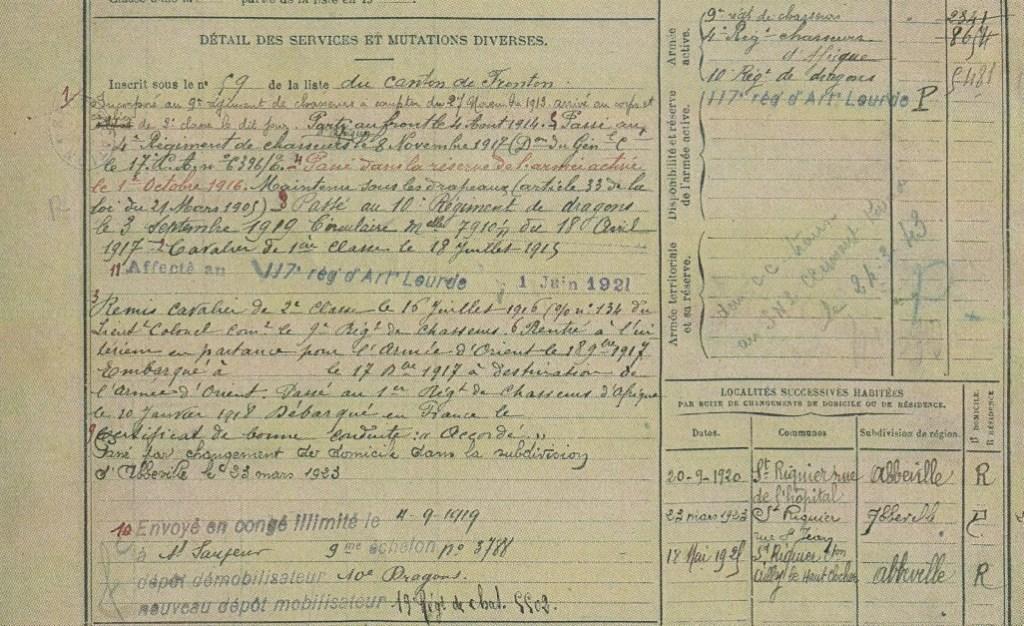 DÉTAIL DES SERVICES ET MUTATIONS DIVERSES.
Inscrit sous le n° 59 de la liste du canton de Fronton
Incorporé au 9e régiment de chasseurs à compter du 27 Novembre 1913, arrivé au corps et
de 2e classe le dit jour. Parti au front le 4 Août 1914. 5 Passé au
4e Régiment de chasseurs le 8 Novembre 1917 (Don du Gén. C
le 17e C.A. n° 6396/2. 4 Passé dans la réserve de l'armée active
le 1er Octobre 1916. Maintenu sous les drapeaux (article 33 de la
loi du 21 Mars 1905) 8 Passé au 10e Régiment de dragons
le 3 Septembre 1919 Circulaire Melle 7910 du 18 Avril
1917 2 Cavalier de 1ère classe le 18 Juillet 1915
11 Affecté au 117e rég d'Artie Lourde 1 Juin 1921
3 Remis cavalier de 2e classe le 16 Juillet 1916 (o/o n° 134 du
Lieut Colonel Comt le 9e Régt de Chasseurs. 6 Rentré à l'in
térieur en partance pour l'Armée d'Orient le 18 9bre 1917
Embarqué à le 17 Dbre 1917 à destination de
l'Armée d'Orient. Passé au 1er Régt de Chasseurs d'Afrique
le 20 Janvier 1918 Débarqué en France le
9 Certificat de bonne conduite : "Accordé"
Passé par changement de domicile dans la subdivision
d'Abbeville le 23 mars 1923
10 Envoyé en congé illimité le 4-9-1919
à St Sauveur 9me échelon n° 3788
dépôt démobilisateur 10e Dragons.
nouveau dépôt mobilisateur 19e Régt de chas. 5502.
Armée active.
9e régt de chasseurs 2841
4e Régt chasseurs 8654
d'Afrique
10e Régt de dragons 5481
117e rég d'Artie Lourde P
Disponibilité et réserve de l'armée active.
Armée territoriale et sa réserve.
LOCALITÉS SUCCESSIVES HABITÉES
PAR SUITE DE CHANGEMENTS DE DOMICILE OU DE RÉSIDENCE.
Dates. Communes Subdivision de région. D DOMICILE. R RÉSIDENCE
20-9-1920 St Riquier rue de l'hôpital Abbeville R
23 mars 1923 St Riquier rue St Jean Abbeville
18 Mai 1925 St Riquier con Ailly le Haut Clocher abbeville R